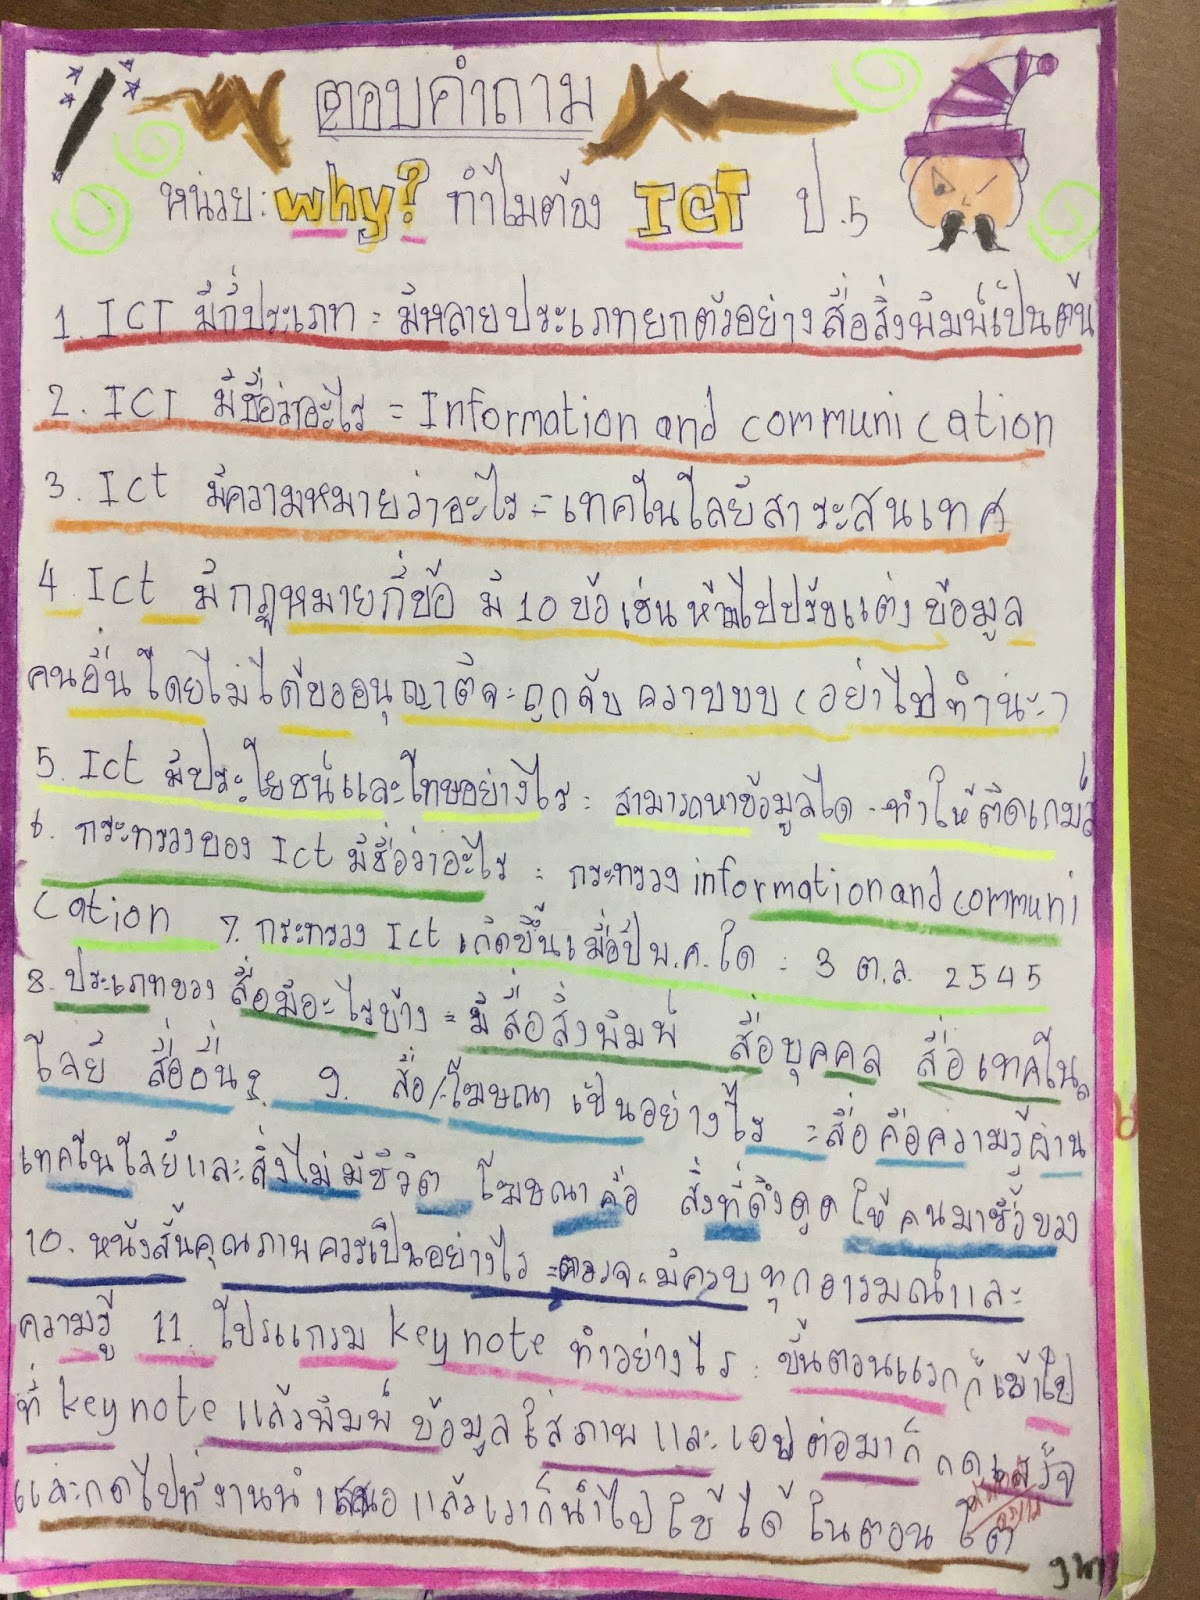 ตอบคำถาม
หน่วย: why? ทำไมต้อง ICT ป.5
1. ICT มีกี่ประเภท = มีหลายประเภทยกตัวอย่างสื่อสิ่งพิมพ์เป็นต้น
2. ICT มีชื่อว่าอะไร = Information and communication
3. Ict มีความหมายว่าอะไร = เทคโนโลยีสาระสนเทศ
4. Ict มีกฎหมายกี่ข้อ มี 10 ข้อเช่นห้ามไปปรับแต่งข้อมูล
คนอื่นโดยไม่ได้ขออนุญาติจะถูกจับ คราบบบ (อย่าไปทำนะ)
5. Ict มีประโยชน์และโทษอย่างไร = สามารถหาข้อมูลได้ - ทำให้ติดเกมส์
6. กระทรวงของ Ict มีชื่อว่าอะไร = กระทรวง information and communi
cation 7. กระทรวง Ict เกิดขึ้นเมื่อปี พ.ศ.ใด = 3 ต.ค. 2545
8. ประเภทของสื่อมีอะไรบ้าง = มี สื่อสิ่งพิมพ์ สื่อบุคคล สื่อเทคโน
โลยี สื่ออื่นๆ 9. สื่อ/โฆษณา เป็นอย่างไร = สื่อ คือความรู้ผ่าน
เทคโนโลยีและสิ่งไม่มีชีวิต โฆษณาคือ สิ่งที่ดึงดูดให้คนมาซื้อของ
10. หนังสั้นคุณภาพควรเป็นอย่างไร = ควรจะมีครบทุกอารมณ์และ
ความรู้ 11. โปรแกรม keynote ทำอย่างไร = ขั้นตอนแรกก็เข้าไป
ที่ keynote แล้วพิมพ์ ข้อมูลใส่ภาพและ ต่อมาก็ กดเสร็จ
และกดไปที่งานนำเสนอ แล้วเราก็นำไปใช้ได้ ในตอน